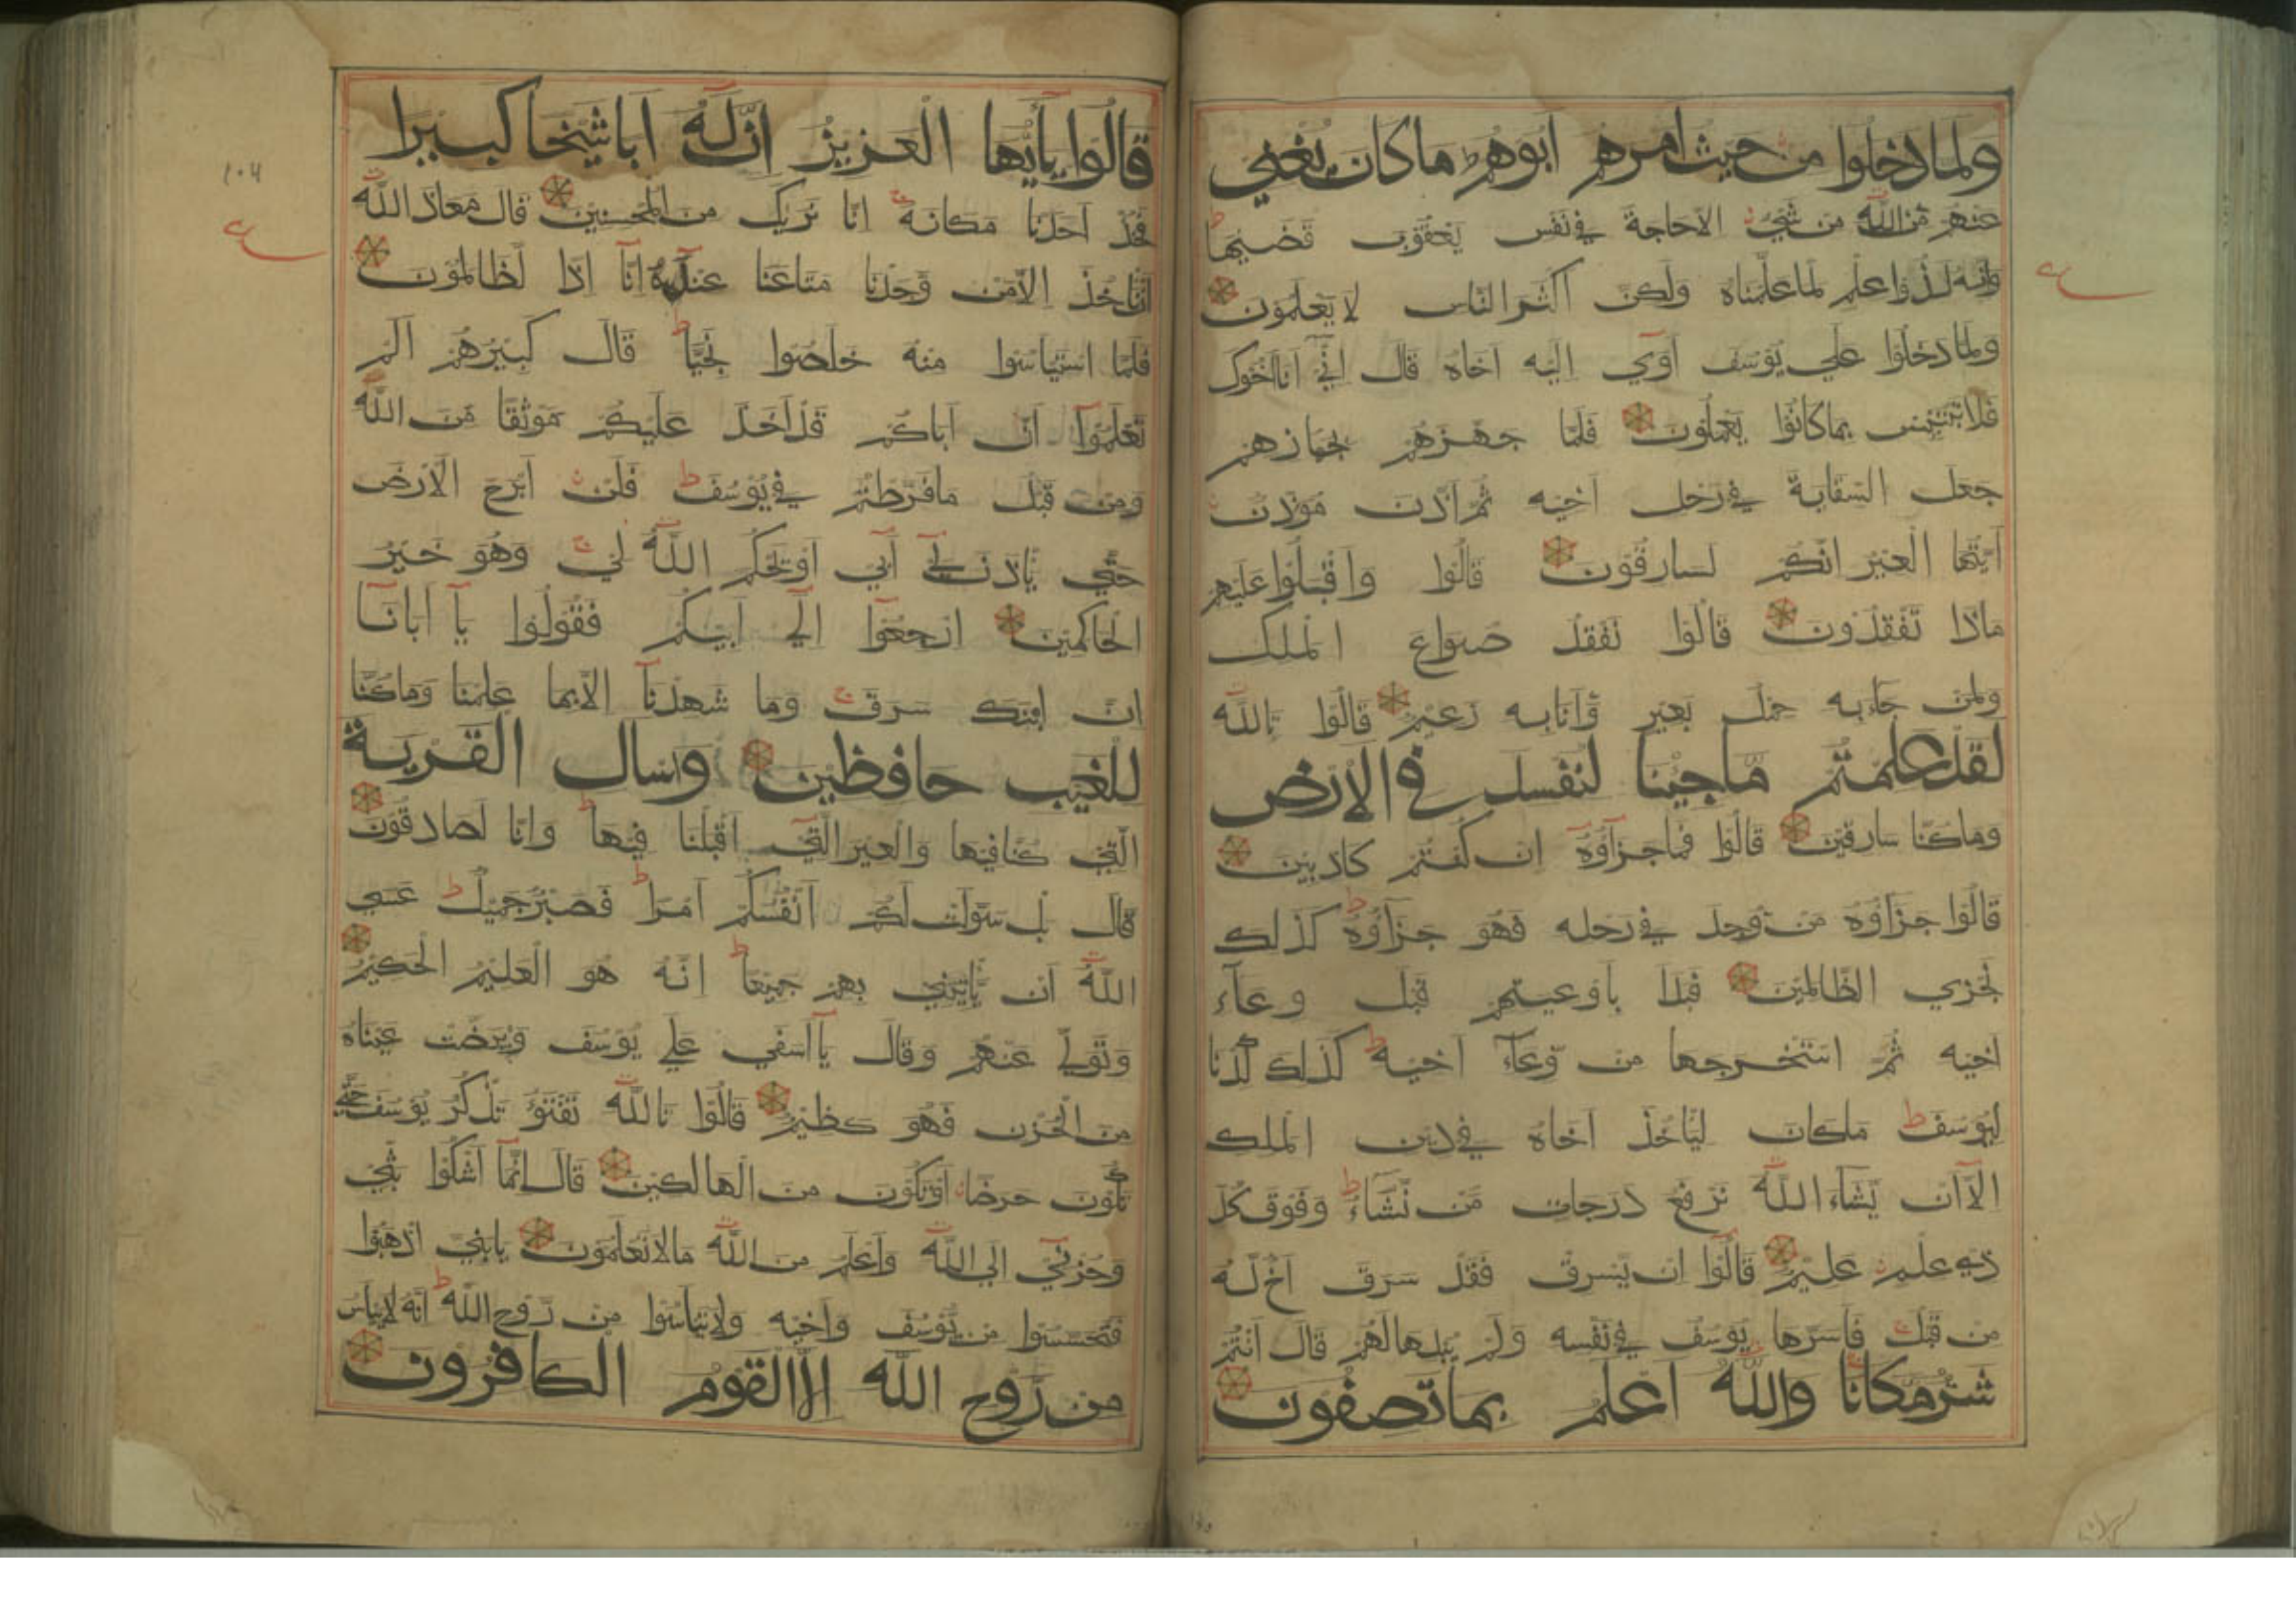 ولما دخلوا من حيث امرهم ابوهم ما كان يغني
عنهم من الله من شيء الا حاجة في نفس يعقوب قضيها
وانه لذوا علم لما علمناه ولكن اكثر الناس لا يعلمون
ولما دخلوا علي يوسف آوي اليه اخاه قال اني انا اخوك
فلا تبتئس بما كانوا يعملون فلما جهزهم بجهازهم
جعل السقاية في رحل اخيه ثم اذن موذن
ايتها العير انكم لسارقون قالوا واقبلوا عليهم
ماذا تفقدون قالوا نفقد صواع الملك
ولمن جاء به حمل بعير وانا به زعيم قالوا تالله
لقد علمتم ما جينا لنفسد في الارض
وما كنا سارقين قالوا فما جزآؤه ان كنتم كاذبين
قالوا جزاؤه من وجد في رحله فهو جزآؤه كذلك
نجزي الظالمين فبدا باوعيتهم قبل وعآء
اخيه ثم استخرجها من وعآء اخيه كذلك كدنا
ليوسف ما كان لياخذ اخاه في دين الملك
الا ان يشآء الله نرفع درجات من نشآء وفوق كل
ذي علم عليم قالوا ان يسرق فقد سرق اخ له
من قبل فاسرها يوسف في نفسه ولم يبدها لهم قال انتم
شر مكانا والله اعلم بما تصفون
قالوا يايها العزيز ان له ابا شيخا كبيرا
فخذ احدنا مكانه انا نريك من المحسنين قال معاذ الله
ان ناخذ الا من وجدنا متاعنا عنده انا اذا لظالمون
فلما استياسوا منه خلصوا نجيا قال كبيرهم الم
تعلموا ان اباكم قد اخذ عليكم موثقا من الله
ومن قبل ما فرطتم في يوسف فلن ابرح الارض
حتي ياذن لي ابي او يحكم الله لي وهو خير
الحاكمين ارجعوا الي ابيكم فقولوا يآ ابانا
ان ابنك سرق وما شهدنآ الا بما علمنا وما كنا
للغيب حافظين وسال القرية
التي كنا فيها والعير التي اقبلنا فيها وانا لصادقون
قال بل سولت لكم انفسكم امرا فصبر جميل عسي
الله ان ياتيني بهم جميعا انه هو العليم الحكيم
وتولي عنهم وقال يآ اسفي علي يوسف وابيضت عيناه
من الحزن فهو كظيم قالوا تالله تفتؤ تذكر يوسف حتي
تكون حرضا او تكون من الهالكين قال انمآ اشكوا بثي
وحزني الي الله واعلم من الله ما لا تعلمون يا بني اذهبوا
فتحسسوا من يوسف واخيه ولا تياسوا من روح الله انه لا يياس
من روح الله الا القوم الكافرون